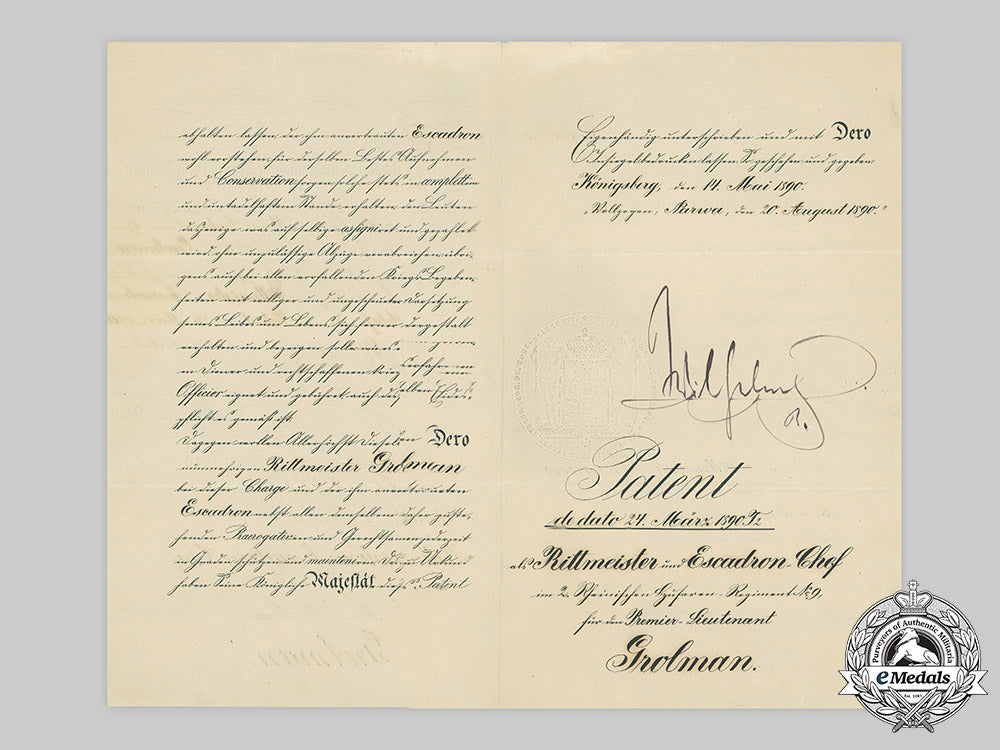 abhalten lassen, der ihm anvertrauten Escadron
wohl vorstehen, für dieselben bestes Aufnehmen
und Conservation sorgen, solche stets in complettem
und untadelhaften Stande erhalten, den Leuten
dasjenige was auf selbige assigniret und gezahlet
wird ohne unzulässige Abzüge verabreichen, übri-
gens auch bei allen vorfallenden Kriegs Begeben-
heiten mit williger und ungescheuter Darsetzung
seines Leibes und Lebens sich ferner dergestalt
erhalten und bezeigen solle, wie es
en Diener und rechtschaffenen kriegserfahrenen
Officier eignet und gebühret, auch desselben Eides-
pflicht es gemäß ist.
Dagegen wollen Allerhöchst Dieselben Dero
nunmehrigen Rittmeister Grolman
bei dieser Charge und der ihm anvertrauten
Escadron nebst allen demselben daher zuste-
henden Praerogativen und Gerechtsamen jederzeit
in Gnaden schützen und mainteniren. Deß zu Urkund
haben Seine Königliche Majestät dieses Patent
Eigenhändig unterschrieben und mit Dero
Insiegel bedrucken lassen. So geschehen und gegeben
Königsberg, den 14. Mai 1890.
"Vollzogen, Narwa, den 20. August 1890."
Wilhelm
R.
Patent
de dato 24. März 1890
als Rittmeister und Escadron-Chef
im 2. Rheinischen Husaren-Regiment No 9,
für den Premier-Lieutenant
Grolman.
Purveyors of Authentic Militaria
eMedals